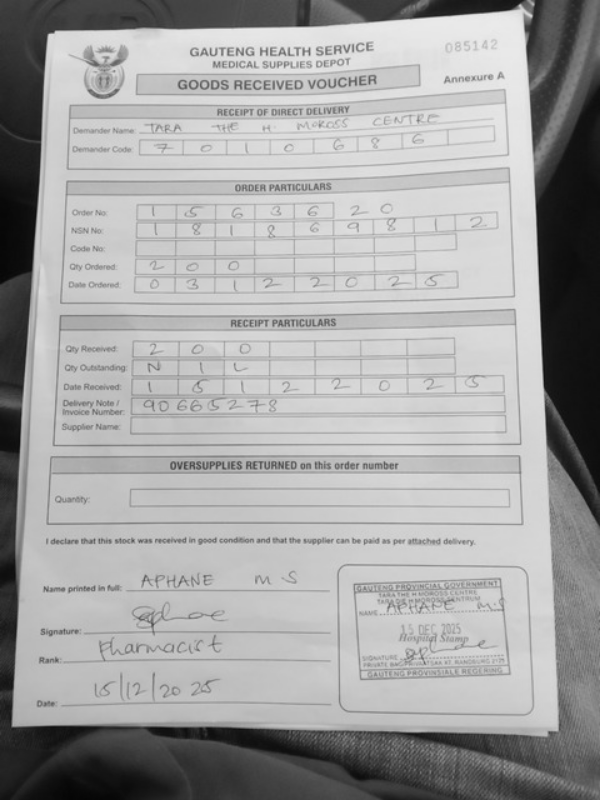 GAUTENG HEALTH SERVICE
085142
MEDICAL SUPPLIES DEPOT
GOODS RECEIVED VOUCHER
Annexure A
RECEIPT OF DIRECT DELIVERY
Demander Name: TARA THE H. MOROSS CENTRE
Demander Code: 7 0 1 0 6 8 6
ORDER PARTICULARS
Order No: 1 5 6 3 6 2 0
NSN No: 1 8 1 8 6 9 8 1 2
Code No:
Qty Ordered: 2 0 0
Date Ordered: 0 3 1 2 2 0 2 5
RECEIPT PARTICULARS
Qty Received: 2 0 0
Qty Outstanding: N I L
Date Received: 1 5 1 2 2 0 2 5
Delivery Note / Invoice Number: 90665278
Supplier Name:
OVERSUPPLIES RETURNED on this order number
Quantity:
I declare that this stock was received in good condition and that the supplier can be paid as per attached delivery.
Name printed in full: APHANE M S
Signature:
Rank: Pharmacist
Date: 15/12/2025
GAUTENG PROVINCIAL GOVERNMENT
TARA THE H MOROSS CENTRE
TARA DIE H MOROSS SENTRUM
NAME APHANE M.S
15 DEC 2025
Hospital Stamp
SIGNATURE
PRIVATE BAG/PRIVAATSAK X7, RANDBURG 2125
GAUTENG PROVINSIALE REGERING